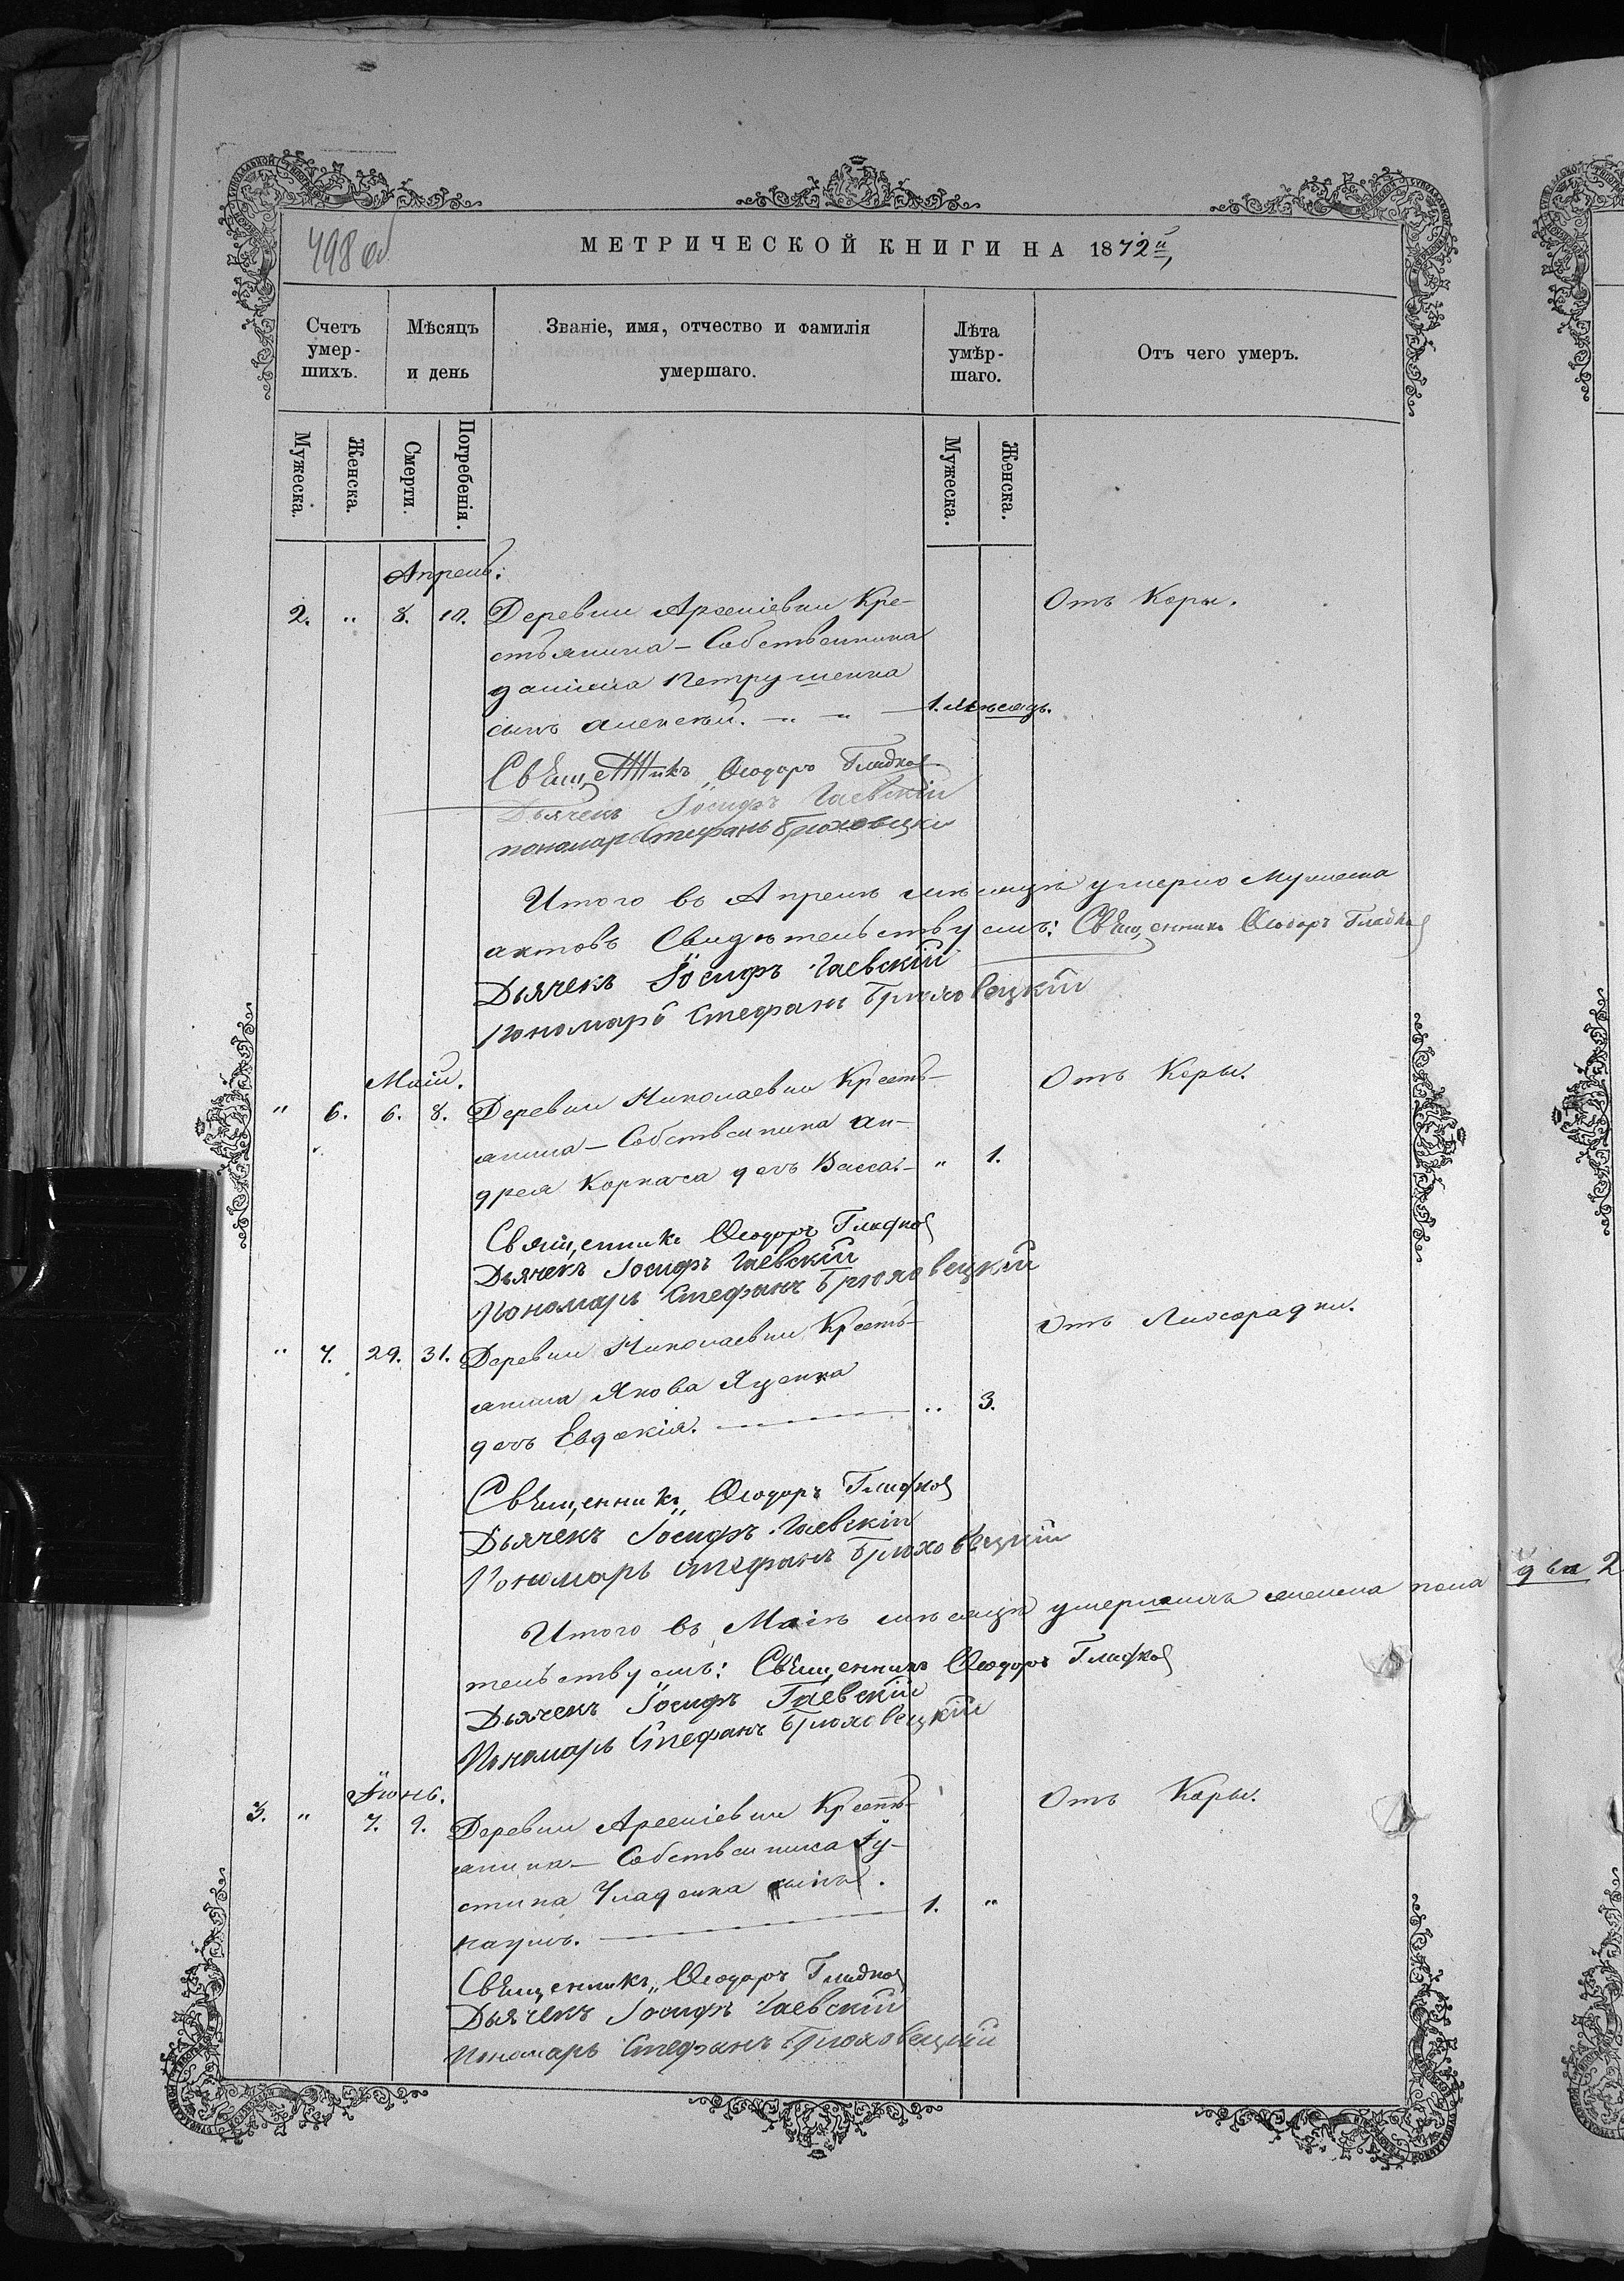 498 об
МЕТРИЧЕСКОЙ КНИГИ НА 1872й,
Счетъ умер-шихъ.
Мѣсяцъ и день
Званіе, имя, отчество и фамилія умершаго.
Лѣта умѣр-шаго.
Отъ чего умеръ.
Мужеска.
Женска.
Смерти.
Погребенія.
Мужеска.
Женска.
Апрель.
2. " 8. 10. Деревни Арсеніевки Кре- Отъ Кори.
стьянина - Собственника
Даніила Петрушенка
сынъ Алексѣй. 1. мѣсяцъ.
Священникъ Ѳеодоръ Гладкой
Дьячекъ Іосифъ Гаевскій
пономарь Стефанъ Брюховецкій
Итого въ Апрелѣ мѣсяцѣ умерло Мужеска
актовъ Свидѣтельствуемъ: Священникъ Ѳеодоръ Гладкой
Дьячекъ Іосифъ Гаевскій
Пономарь Стефанъ Брюховецкій
Маій.
" 6. 6. 8. Деревни Николаевки Кресть- Отъ Кори.
янина - Собственника Ан-
дрея Корпача дочь Васса - " 1.
Священникъ Ѳеодоръ Гладкой
Дьячекъ Іосифъ Гаевскій
Пономарь Стефанъ Брюховецкій
" 7. 29. 31. Деревни Николаевки Кресть- Отъ Лихорадки.
янина Якова Яценка
дочь Евдокія. " 3.
Священникъ Ѳеодоръ Гладкой
Дьячекъ Іосифъ Гаевскій
Пономарь Стефанъ Брюховецкій
Итого въ Маіѣ мѣсяцѣ умершихъ женска пола
тельствуемъ: Священникъ Ѳеодоръ Гладкой
Дьячекъ Іосифъ Гаевскій
Пономарь Стефанъ Брюховецкій
Іюнь.
3. " 7. 9. Деревни Арсеніевки Кресть- Отъ Кори.
янина - Собственника Іу-
стина сынъ
Наумъ. 1. "
Священникъ Ѳеодоръ Гладкой
Дьячекъ Іосифъ Гаевскій
Пономарь Стефанъ Брюховецкій
два 2